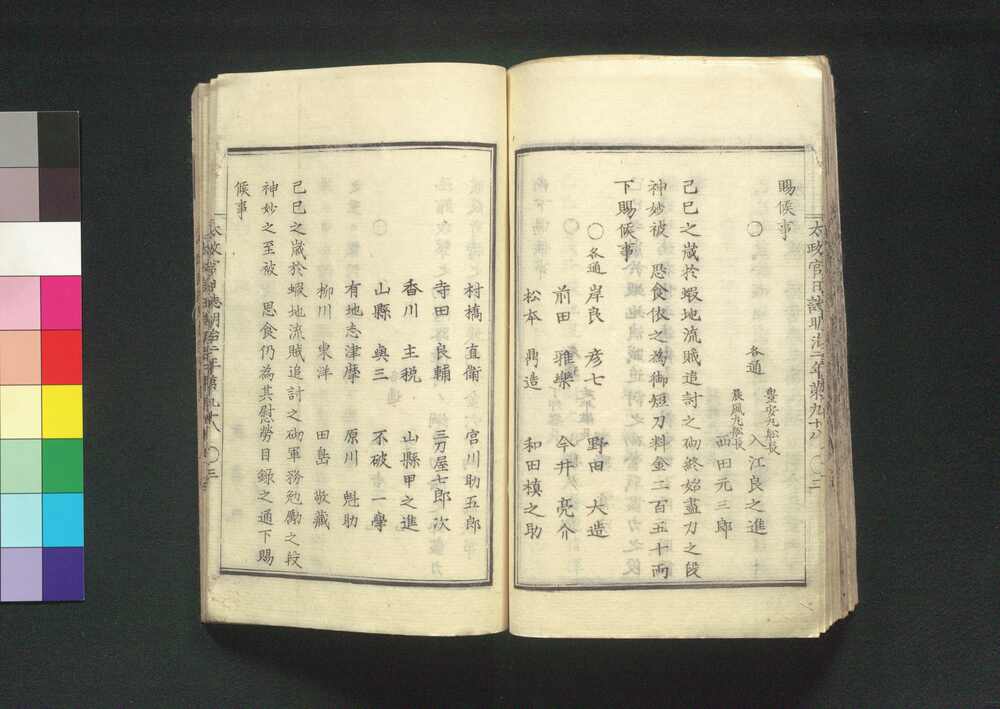 太政官日誌明治二年第九十八 〇三
賜候事
〇 各通 豊安丸船長 入江良之進
晨風丸船長 西田元三郎
己巳之歳於蝦地流賊追討之砌終始盡力之段
神妙被 思食依之為御短刀料金二百五十両
下賜候事
〇各通 岸良 彦七 野田 大造
前田 雅樂 今井 亮介
松本 鼎造 和田 槙之助
村橋 直衛 宮川助五郎
寺田 良輔 三刀屋七郎次
香川 主税 山縣甲之進
〇 山縣 與三 不破 一學
有地志津摩 原川 魁助
柳川 東洋 田島 敬藏
己巳之歳於蝦地流賊追討之砌軍務勉勵之段
神妙之至被 思食仍為其慰勞目録之通下賜
候事